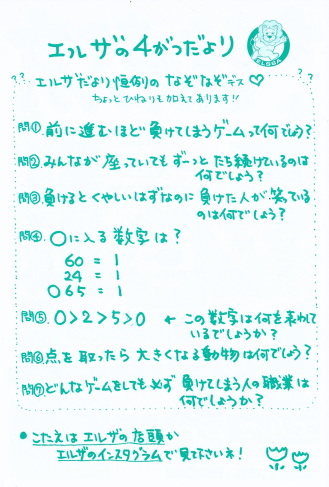 エルザの4がつだより
ELSSA
エルザだより恒例のなぞなぞデス♡
ちょっとひねりも加えてあります!!
問① 前に進むほど負けてしまうゲームって何でしょう?
問② みんなが座っていてもずーっとたち続けているのは
何でしょう?
問③ 負けるとくやしいはずなのに負けた人が笑っている
のは何でしょう?
問④ ○に入る数字は?
60 = 1
24 = 1
○65 = 1
問⑤ 0>2>5>0 ← この数字は何を表わして
いるでしょうか?
問⑥ 点を取ったら大きくなる動物は何でしょう?
問⑦ どんなゲームをしても必ず負けてしまう人の職業は
何でしょうか?
● こたえはエルザの店頭か
エルザのインスタグラムで見て下さいネ!